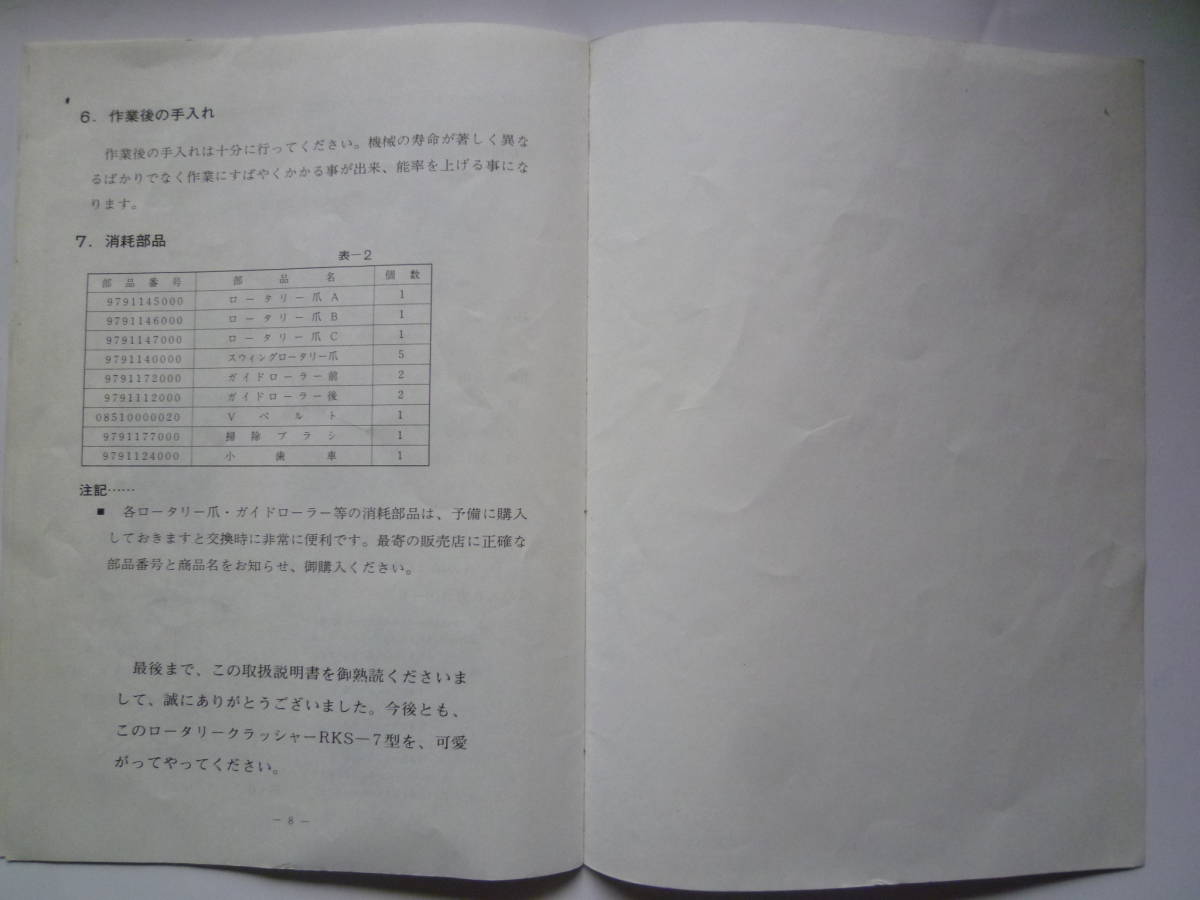 6. 作業後の手入れ
作業後の手入れは十分に行ってください。機械の寿命が著しく異な
るばかりでなく作業にすばやくかかる事が出来、能率を上げる事にな
ります。
7. 消耗部品
表－2
部品番号 部品名 個数
9791145000 ロータリー爪A 1
9791146000 ロータリー爪B 1
9791147000 ロータリー爪C 1
9791140000 スウィングロータリー爪 5
9791172000 ガイドローラー前 2
9791112000 ガイドローラー後 2
08510000020 Vベルト 1
9791177000 掃除ブラシ 1
9791124000 小歯車 1
注記……
■ 各ロータリー爪・ガイドローラー等の消耗部品は、予備に購入
しておきますと交換時に非常に便利です。最寄の販売店に正確な
部品番号と商品名をお知らせ、御購入ください。
最後まで、この取扱説明書を御熟読くださいま
して、誠にありがとうございました。今後とも、
このロータリークラッシャーRKS－7型を、可愛
がってやってください。
－8－